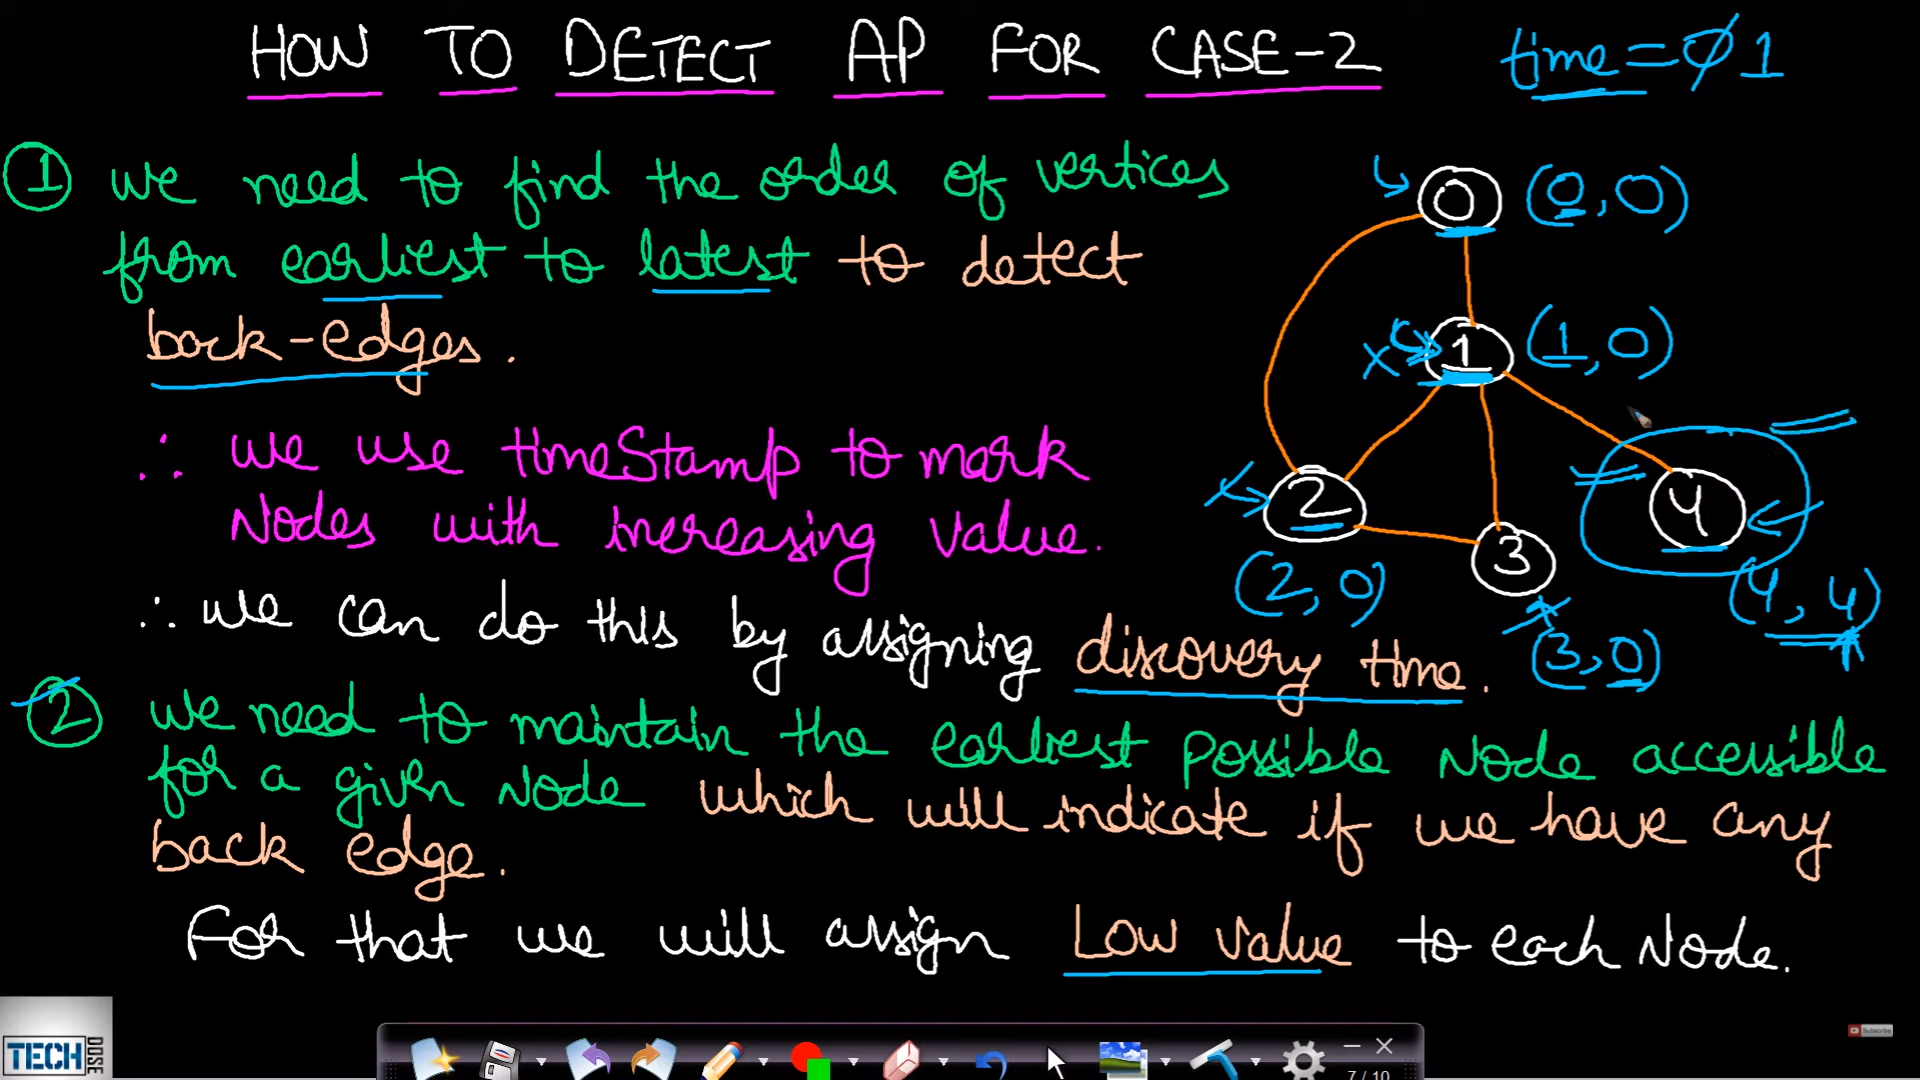 HOW TO DETECT AP FOR CASE-2
time = 0 1
① we need to find the order of vertices
from earliest to latest to detect
back-edges.
∴ we use timeStamp to mark
Nodes with increasing value.
∴ we can do this by assigning discovery time.
② we need to maintain the earliest possible Node accessible
for a given Node which will indicate if we have any
back edge.
For that we will assign Low value to each Node.
0 (0,0)
1 (1,0)
2
4
3
(2,0)
(4,4)
(3,0)
TECH DOSE
Subscribe
7 / 10